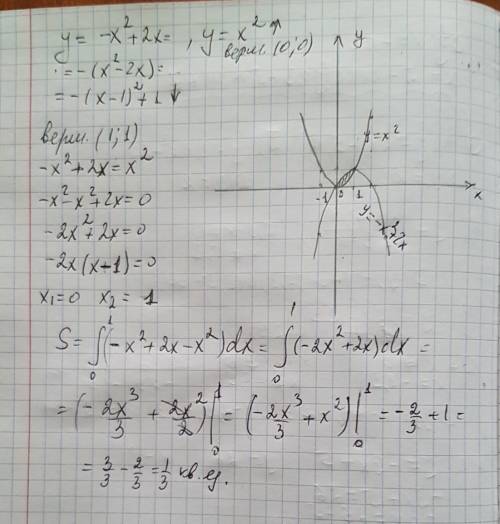 y = -x² + 2x = , y = x² ↑
верш. (0; 0)
= -(x² - 2x) =
= -(x - 1)² + 1 ↓
верш. (1; 1)
-x² + 2x = x²
-x² - x² + 2x = 0
-2x² + 2x = 0
-2x(x + 1) = 0
x₁ = 0 x₂ = 1
y
y = x²
-1 0 1 x
y = -x² + 2x
S = ∫₀¹ (-x² + 2x - x²) dx = ∫₀¹ (-2x² + 2x) dx =
= (-2x³/3 + 2x²/2) |₀¹ = (-2x³/3 + x²) |₀¹ = -2/3 + 1 =
= 3/3 - 2/3 = 1/3 кв. ед.